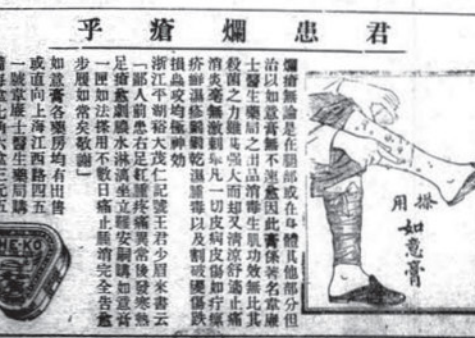 君患爛瘡乎
爛瘡無論是在腿部或在身體其他部分但
治以如意膏無不速愈因此膏係著名韋廉
士醫生藥局之出品消毒生肌功效無比其
殺菌之力雖強大而却又清涼舒適止痛
消炎毫無激刺舉凡一切皮病皮傷如疔瘰
疥癬濕疹皸裂乾濕腫毒以及割破燙傷跌
損蟲咬均極神効
浙江平湖裕大茂仁記號王君少眉來書云
「鄙人前患右足紅腫疼痛異常後發寒熱
足瘡愈劇膿水淋漓坐立難安嗣購如意膏
一匣如法搽用不數日痛止腫消完全告愈
步履如常矣敬謝」
如意膏各藥房均有出售
或直向上海江西路四五
一號韋廉士醫生藥局購
搽用
如意膏
HE-KO